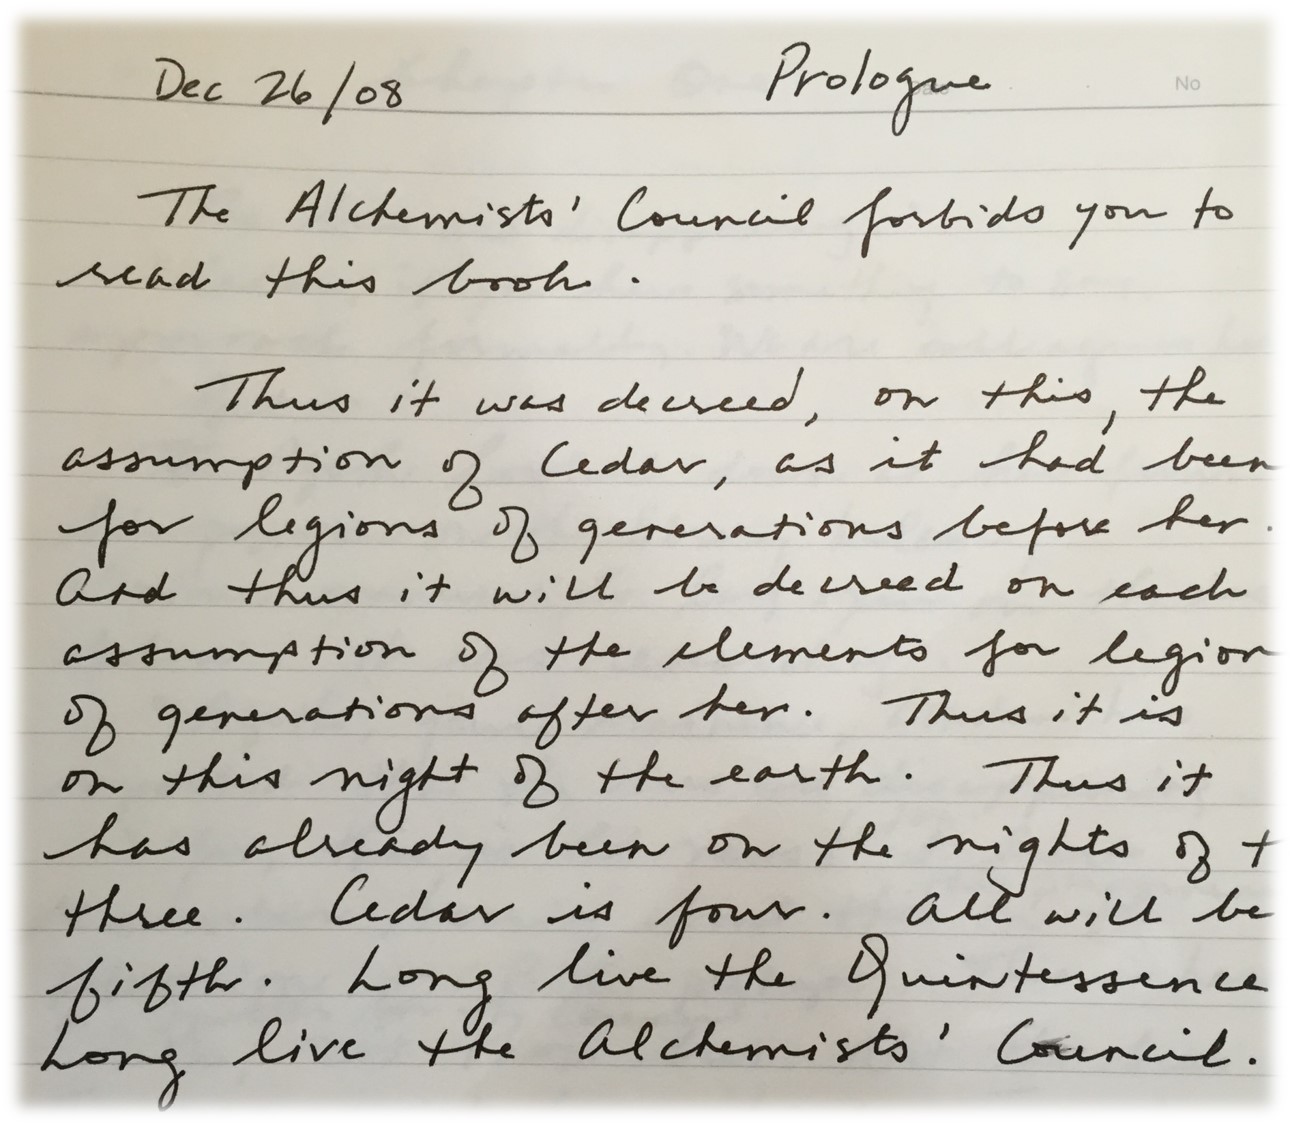 Dec 26/08 Prologue No
The Alchemists' Council forbids you to
read this book.
Thus it was decreed, on this, the
assumption of Cedar, as it had been
for legions of generations before her.
And thus it will be decreed on each
assumption of the elements for legion
of generations after her. Thus it is
on this night of the earth. Thus it
has already been on the nights of t
three. Cedar is four. All will be
fifth. Long live the Quintessence
Long live the Alchemists' Council.